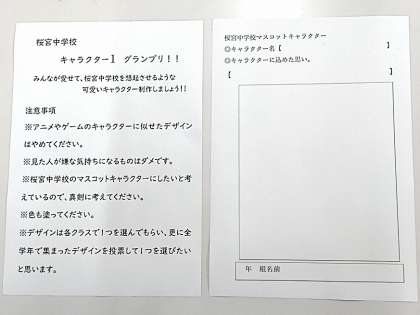 桜宮中学校
キャラクター1 グランプリ!!
みんなが愛せて、桜宮中学校を想起させるような
可愛いキャラクター制作しましょう!!
注意事項
※アニメやゲームのキャラクターに似せたデザイン
はやめてください。
※見た人が嫌な気持ちになるものはダメです。
※桜宮中学校のマスコットキャラクターにしたいと考
えているので、真剣に考えてください。
※色も塗ってください。
※デザインは各クラスで1つを選んでもらい、更に全
学年で集まったデザインを投票して1つを選びたい
と思います。
桜宮中学校マスコットキャラクター
◎キャラクター名【 】
◎キャラクターに込めた思い。
【 】
年 組名前